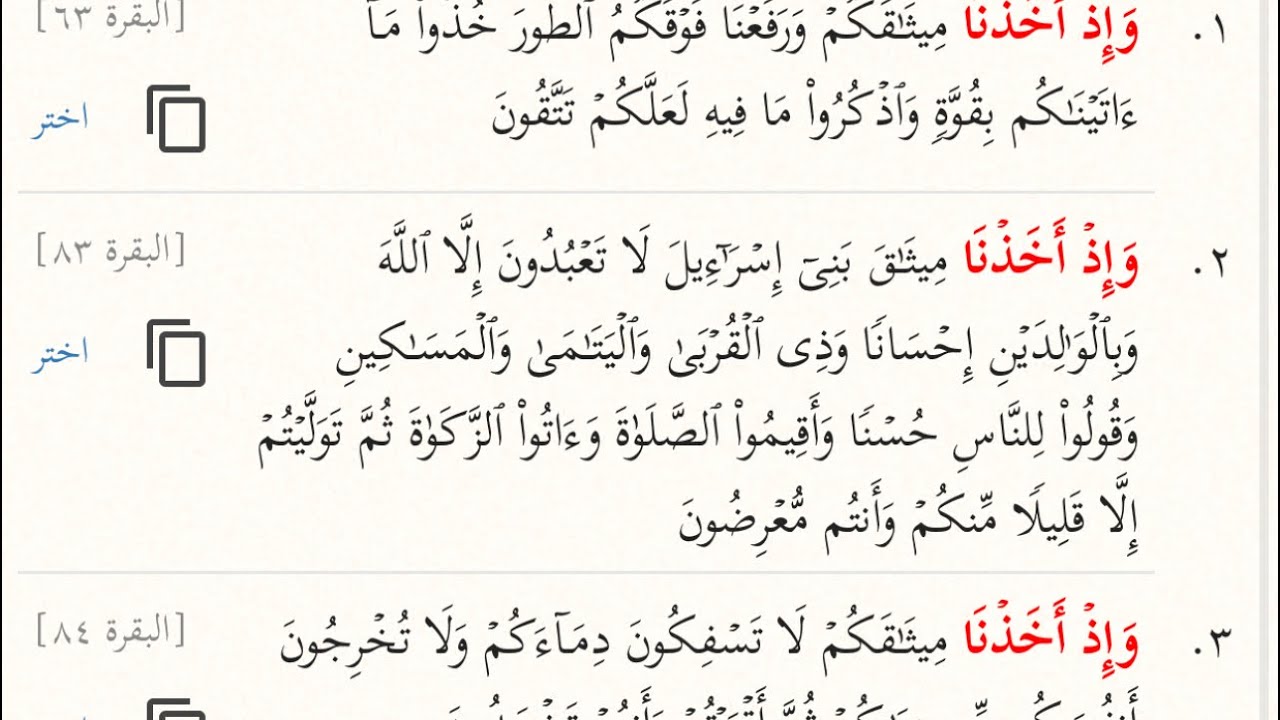 ١. وَإِذۡ أَخَذۡنَا مِيثَٰقَكُمۡ وَرَفَعۡنَا فَوۡقَكُمُ ٱلطُّورَ خُذُواْ مَآ [البقرة ٦٣]
ءَاتَيۡنَٰكُم بِقُوَّةٖ وَٱذۡكُرُواْ مَا فِيهِ لَعَلَّكُمۡ تَتَّقُونَ
اختر
٢. وَإِذۡ أَخَذۡنَا مِيثَٰقَ بَنِيٓ إِسۡرَٰٓءِيلَ لَا تَعۡبُدُونَ إِلَّا ٱللَّهَ [البقرة ٨٣]
وَبِٱلۡوَٰلِدَيۡنِ إِحۡسَانٗا وَذِي ٱلۡقُرۡبَىٰ وَٱلۡيَتَٰمَىٰ وَٱلۡمَسَٰكِينِ
اختر
وَقُولُواْ لِلنَّاسِ حُسۡنٗا وَأَقِيمُواْ ٱلصَّلَوٰةَ وَءَاتُواْ ٱلزَّكَوٰةَ ثُمَّ تَوَلَّيۡتُمۡ
إِلَّا قَلِيلٗا مِّنكُمۡ وَأَنتُم مُّعۡرِضُونَ
٣. وَإِذۡ أَخَذۡنَا مِيثَٰقَكُمۡ لَا تَسۡفِكُونَ دِمَآءَكُمۡ وَلَا تُخۡرِجُونَ [البقرة ٨٤]